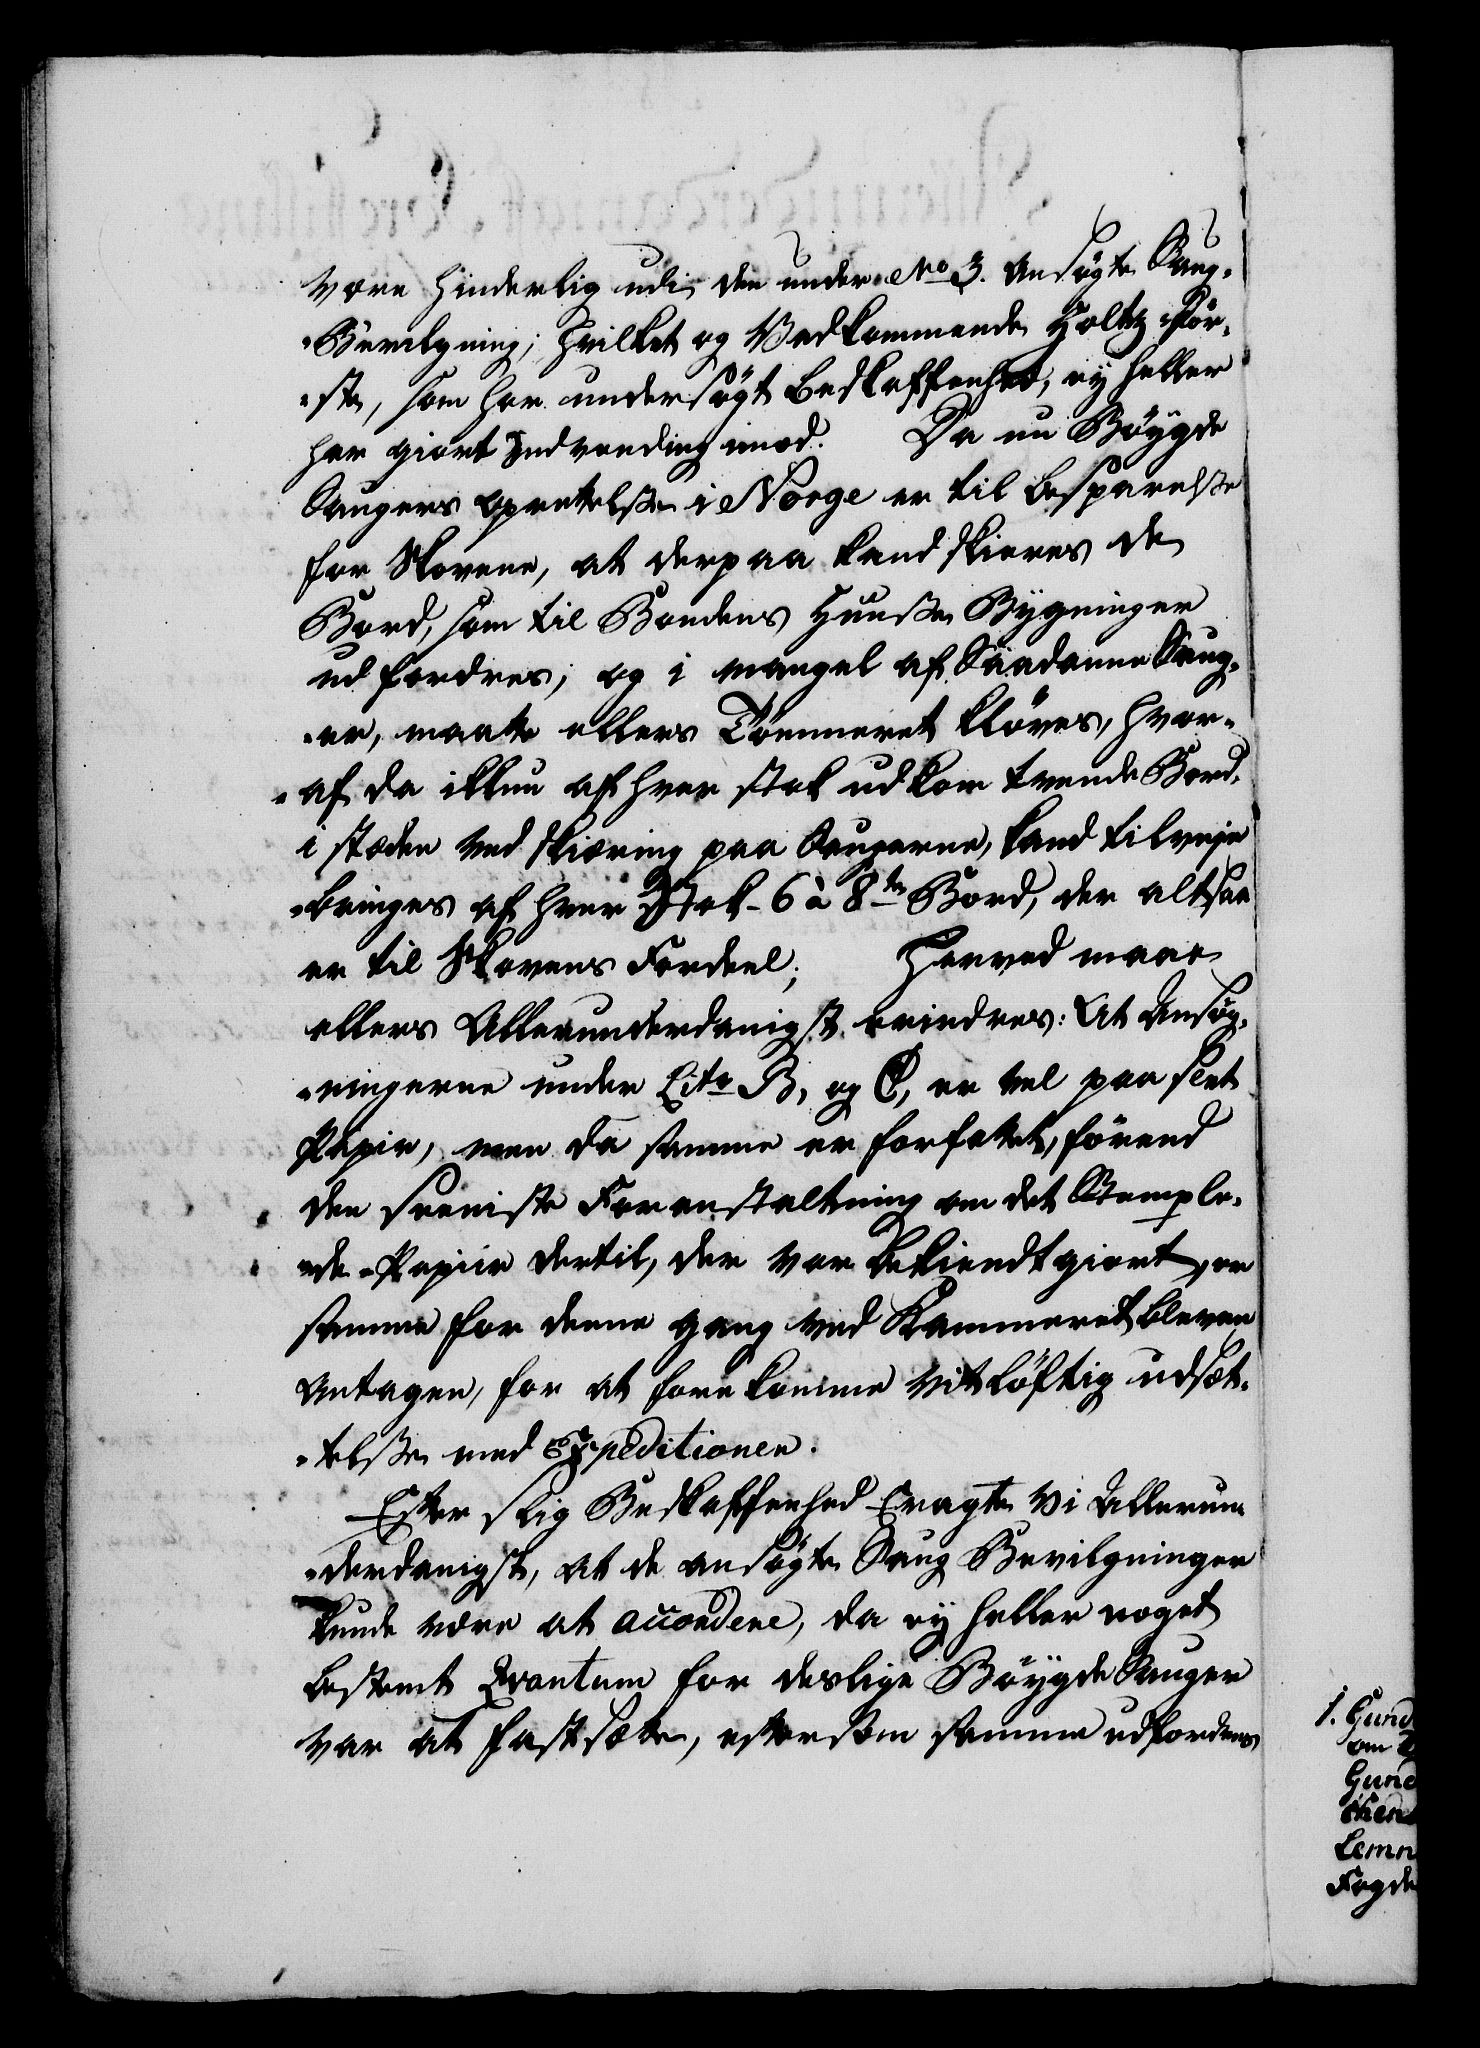 være hinderlig udi den under No 3. ansøgte Saug-
-Bevilgning; hvilket og Vedkommende Holtz-För-
-ster, som har undersøgt Beskaffenhed, ey heller
har giort Indvending imod. Da nu Bøygde
Saugers oprettelse i Norge er til besparelse
for Skovene, at derpaa kand skieres de
Bord, som til Bondens Huuse Bygninger
udfordres; og i mangel af Saadanne Saug-
-er, maatte ellers Tømmeret kløves, hvor-
-af da ikkun af hver stok udkom tvende Bord,
i stæden ved skiæring paa Saugerne, kand tilveje
-bringes af hver Stok 6 à 8te Bord, der altsaa
er til Skovens Fordeel; Herved maae
ellers Allerunderdanigst erindres: At Ansøg-
-ningerne under Litr B, og C, er vel paa slet
Papir, men da samme er forfatet, førend
den seeniste Foranstaltning om det Stemple-
-de-Papiir dertil, der var bekiendtgiort, er
samme for denne gang ved Kammeret bleven
antagen, for at forekomme vitløftig udsæt-
-telse med Expeditionen.
Efter slig Beskaffenhed Eragter Vi Allerun-
-derdanigst, at de ansøgte Saug Bevilgninger
kunde være at accordere, da ey heller noget
bestemt Qvantum for deslige Bøygde Sauger
var at fastsætte, eftersom samme udfordres
1. Gund
om
Gund
Lemn
Fogde